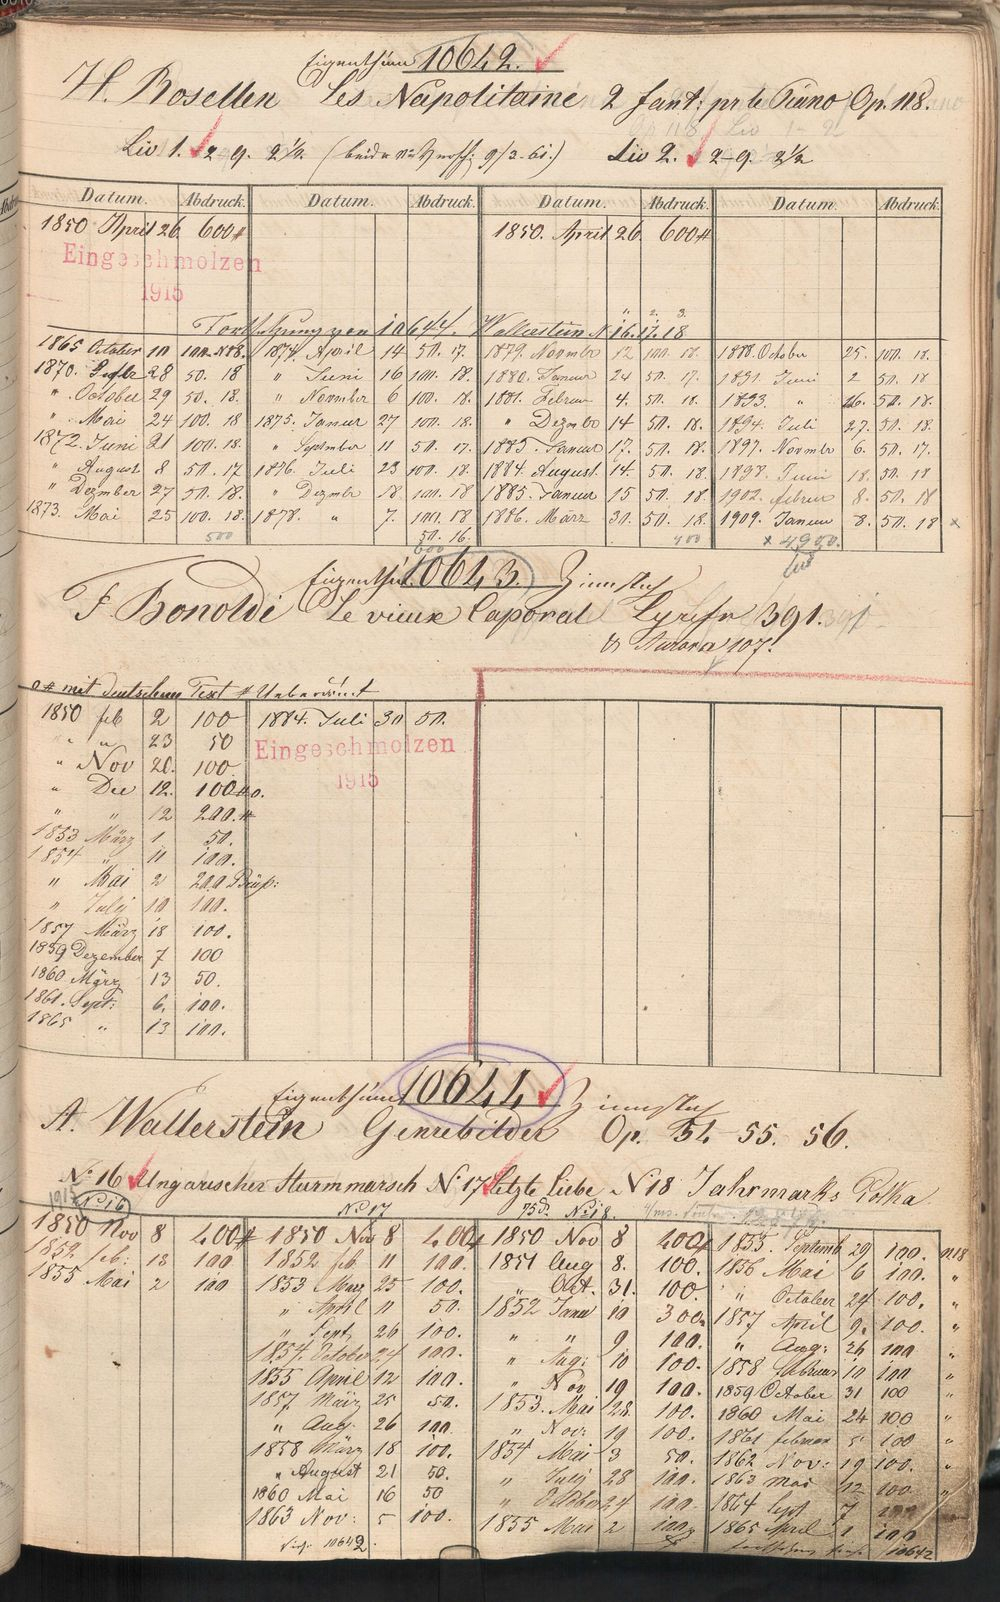 Eigenthum 10642.
H. Rosellen Les Napolitaine 2 fant: pr le Piano Op. 118.
Liv 1. 2 9. 2½ Liv 2. 2-9. 2½
Datum. Abdruck. Datum. Abdruck. Datum. Abdruck. Datum. Abdruck.
1850 April 26 600# 1850. April 26. 600#
Eingeschmolzen
1915
Fortsetzung von 10644. Wallerstein N. 16. 17. 18
1865 October 10 100. N18. 1874. April 14 50. 17. 1879. Novmbr 12 100. 18. 1888. October 25. 100. 18.
1870. 28 50. 18 " Juni 16 100. 18. 1880. Januar 24 50. 17. 1891. Juni 2 50. 18
" October 29 50. 18. " November 6 100. 18. 1881. Februar 4. 50. 18. 1893. " 26. 50. 18.
" Mai 24 100. 18 1875. Januar 27 100. 18. " Dezmbr 14 50. 18. 1894. Juli 27. 50. 18.
1872. Juni 21 100. 18. " September 11 50. 17. 1883. Januar 17. 50. 18. 1897. Novmbr 6. 50. 17.
" August 8 50. 17 1876. Juli 23 100. 18. 1884. August 14. 50. 18. 1898. Juni 18. 50. 18
" Dezmber 27 50. 18. " Dezmbr 18. 100. 18 1885. Januar 15 50. 18 1902. Februar 8. 50. 18
1873. Mai 25 100. 18. 1878. " 7. 100. 18 1886. März 30. 50. 18. 1909. Januar 8. 50. 18 x
500 50. 16. 400 x 4900.
600
Eigenthum 10643. Zinnstich
F. Bonoldi Le vieux Caporal Lyre fr 391.
& Aurora 107.
o# mit deutschem Text # Ueberdruck
1850 feb 2 100 1884. Juli 30 50.
" " 23 50
Eingeschmolzen
1915
" Nov 20. 100
" Dec 12. 100#o.
" " 12 200.#
1853 März 1 50.
1854 " 11 100.
" Mai 2 200
" July 10 100.
1857 März 18 100.
1859 Dezember 7 100
1860 März 13 50.
1861. Sept: 6. 100.
1865 " 13 100.
Eigenthum 10644 Zinnstich
A. Wallerstein Genrebilder Op. 54 55. 56.
No 16 Ungarischer Sturmmarsch No 17 Letzte Liebe No 18 Jahrmarkts Polka
1915 No 16 No 17 No 18.
1850 Nov 8 200# 1850 Nov 8 200# 1850 Nov 8 200# 1855. Septemb 29 100. N18
1852 feb: 13 100 1852 feb 11 100. 1851 Aug 8. 100. 1856 Mai 6 100. "
1855 Mai 2 100 1853 März 25 100. " Oct. 31. 100. " October 24 100. "
" April 11 50. 1852 Janu 10 300 1857 April 9. 100. "
" Sept 26 100. " " 9 100. " Aug: 26 100 "
1854. October 24 100. " Aug: 10 100. 1858 februar 10 100 "
1855 April 12 100. " Nov 19 100. 1859 October 31 100 "
1857 März 25 50. 1853. Mai 28 100. 1860 Mai 24 100 "
" Aug: 26 100 " Nov: 19 100. 1861 februar 5 100 "
1858 März 18 100. 1854 Mai 3 50. 1862 Nov: 19 100. "
" August 21 50. " July 28 100. 1863 Mai 12 100. "
1860 Mai 16 50 " October 24 100. 1864 Sept 7 100
1863 Nov: 5 100. 1855 Mai 2 100 1865 April 1 100
10642 10642